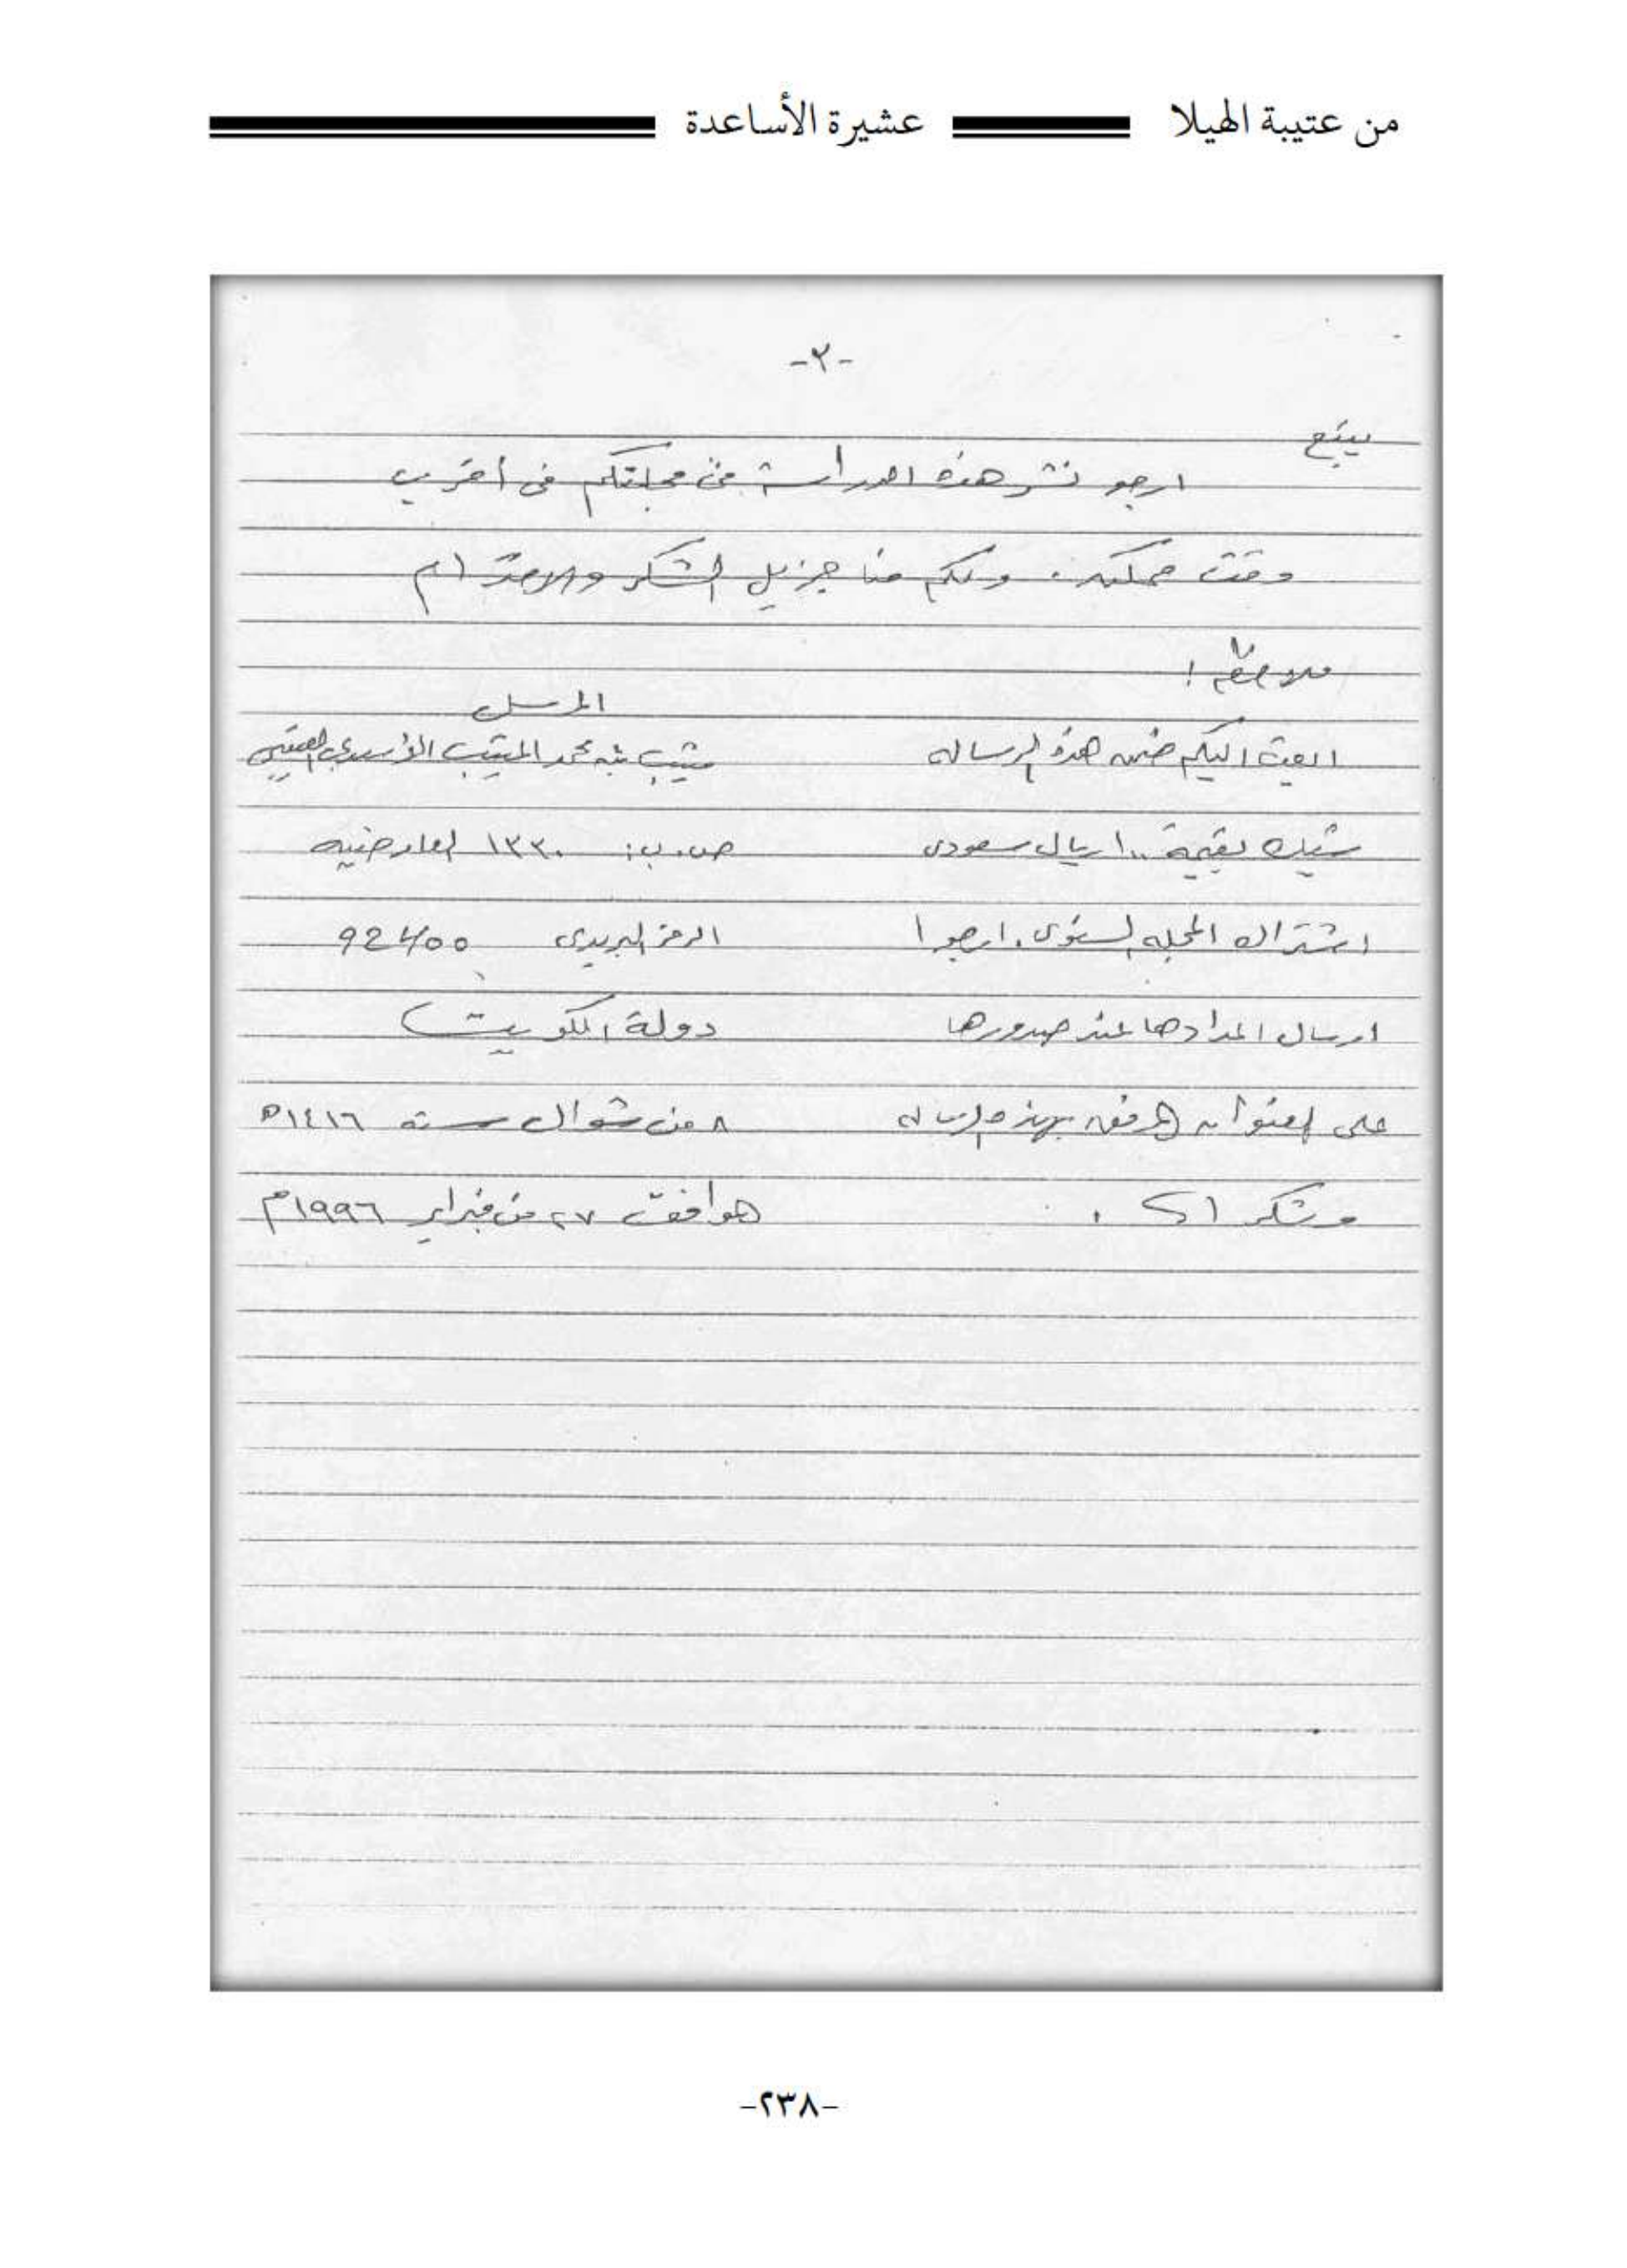 من عتيبة الهيلا عشيرة الأساعدة
-٢-
يتبع
ارجو نشر هذه الدراسة في مجلتكم في أقرب
وقت ممكن. ولكم منا جزيل الشكر والاحترام
ملاحظة!
ابعث اليكم ضمن هذه الرساله
شيك بقيمة ١٠٠ ريال سعودى
اشتراك المجله السنوى. ارجوا
ارسال اعدادها عند صدورها
على العنوان المرفق بهذه الرساله
وشكراً.
المرسل
شبيب بن محمد الأسعدي العتيبي
ص.ب: ١٣٣٠ العارضيه
الرمز البريدى 92400
دولة الكويت
٨ من شوال سنة ١٤١٦ه
موافق ٢٧ من فبراير ١٩٩٦م
-٢٣٨-